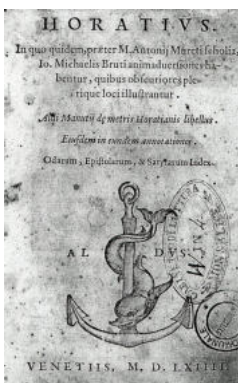 HORATIVS.
In quo quidem, præter M. Antonij Mureti scholia,
Io. Michaelis Bruti animaduersiones ha-
bentur, quibus obscuriores ple-
rique loci illustrantur.
Aldi Manutij de metris Horatianis libellus.
Eiusdem in eundem annotationes.
Odarum, Epistolarum, & Satyrarum Index.
AL DVS
VENETIIS, M. D. LXIIII.